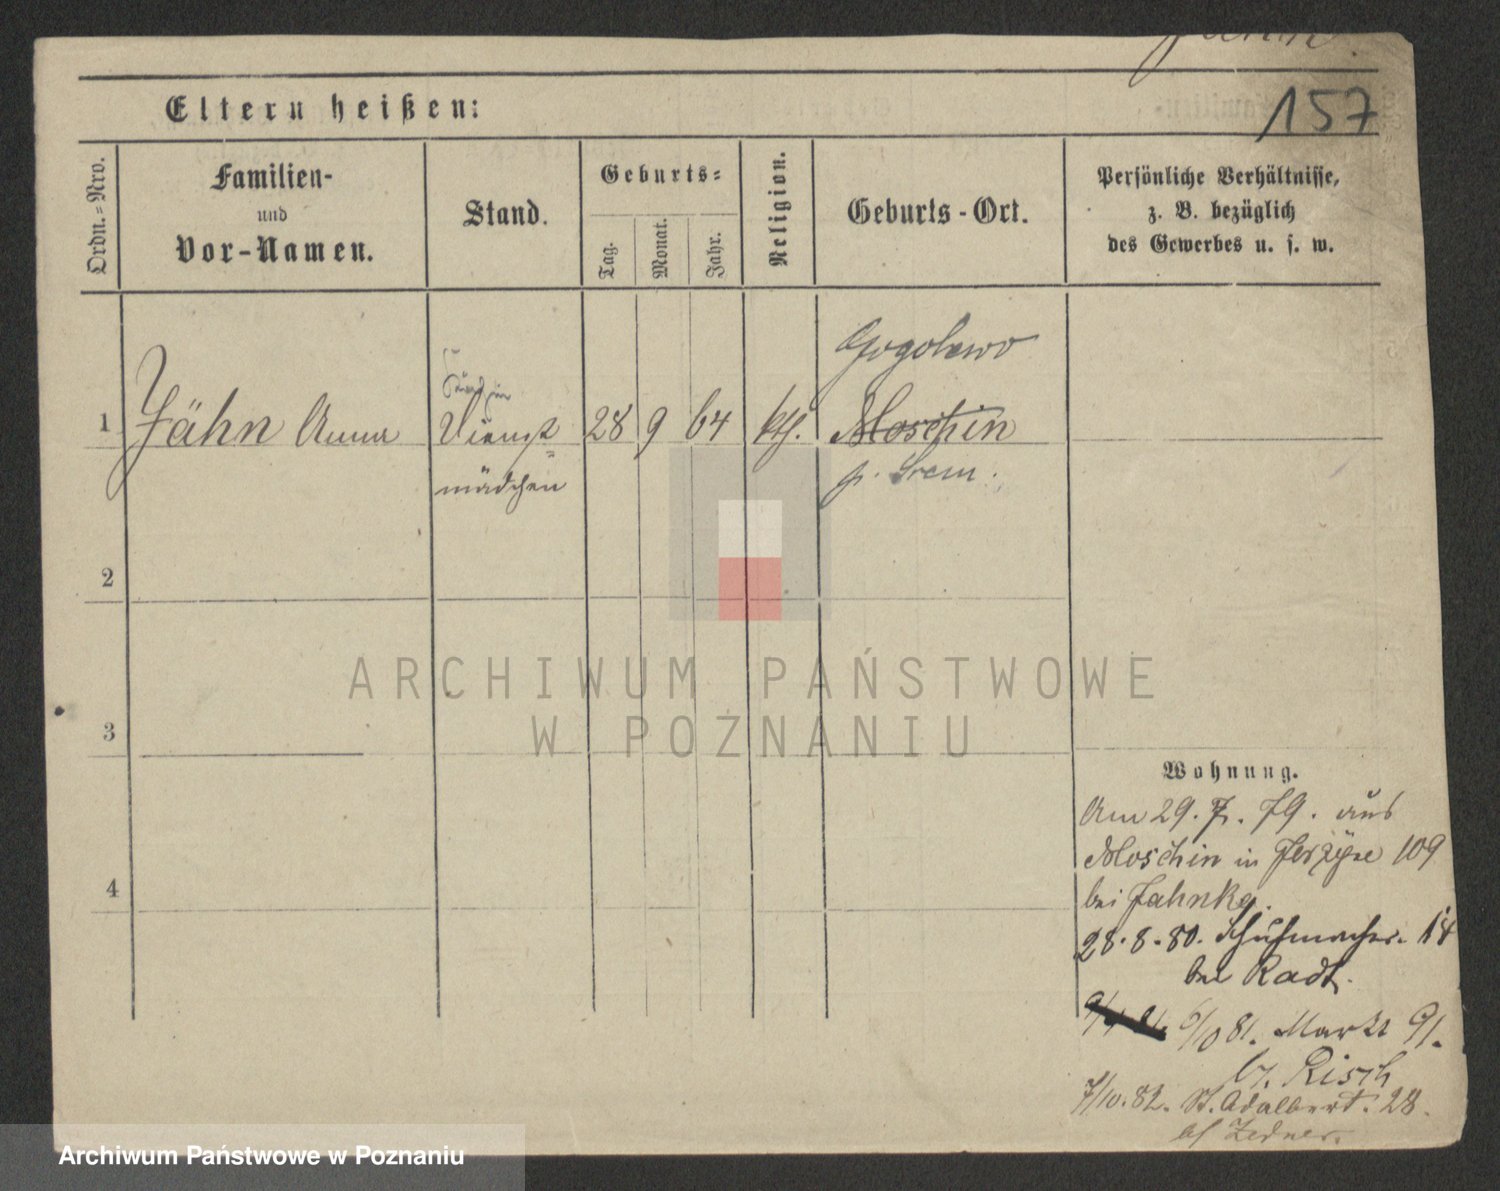 157
Eltern heißen:
Ordn.=Nro.
Familien-
und
Vor-Namen.
Stand.
Geburts=
Tag.
Monat.
Jahr.
Religion.
Geburts-Ort.
Persönliche Verhältnisse,
z. B. bezüglich
des Gewerbes u. s. w.
Gogolewo
1 Jähn Anna Dienst= 28 9 64 kth. Moschin
mädchen p. Srem.
2
3
4
ARCHIWUM PAŃSTWOWE
W POZNANIU
Wohnung.
Am 29. 7. 79. aus
Moschin in 109
bei Jahnke.
28.8.80. Schuhmacher. 14
bei Radt.
81. Markt 91.
b. Risch
7/10.82. St. Adalbert. 28.
bf Zedner.
Archiwum Państwowe w Poznaniu